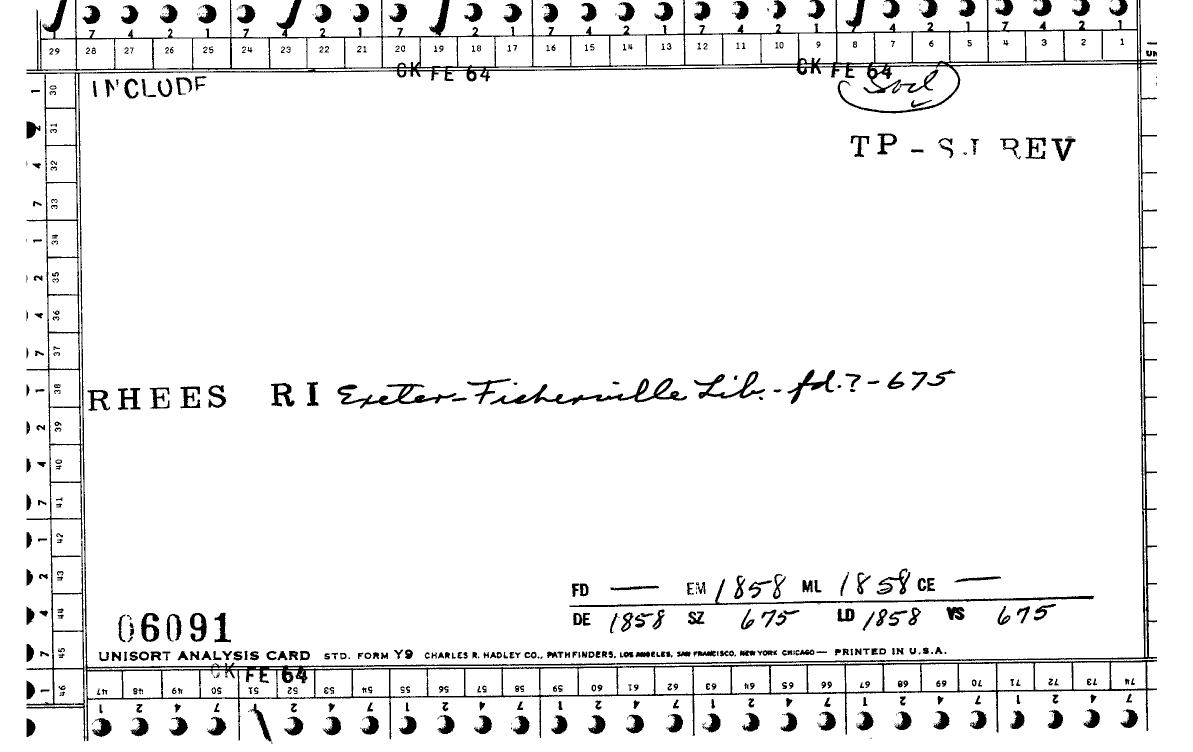 7 4 2 1 7 4 2 1 7 2 1 7 4 2 1 7 4 2 1 7 4 2 1 7 4 2 1
29 28 27 26 25 24 23 22 21 20 19 18 17 16 15 14 13 12 11 10 9 8 7 6 5 4 3 2 1
CK FE 64 CK FE 64
INCLUDE
TP - SJ REV
1 30
2 31
4 32
7 33
1 34
2 35
4 36
7 37
1 38
2 39
4 40
7 41
1 42
2 43
4 44
7 45
1 46
RHEES RI Exeter-Fisherville Lib.-fd.?-675
FD — EM 1858 ML 1858 CE —
DE 1858 SZ 675 LD 1858 VS 675
06091
UNISORT ANALYSIS CARD STD. FORM Y9 CHARLES R. HADLEY CO., PATHFINDERS, LOS ANGELES, SAN FRANCISCO, NEW YORK CHICAGO — PRINTED IN U.S.A.
CK FE 64
47 48 49 50 51 52 53 54 55 56 57 58 59 60 61 62 63 64 65 66 67 68 69 70 71 72 73 74
1 2 4 7 1 2 4 7 1 2 4 7 1 2 4 7 1 2 4 7 1 2 4 7 1 2 4 7